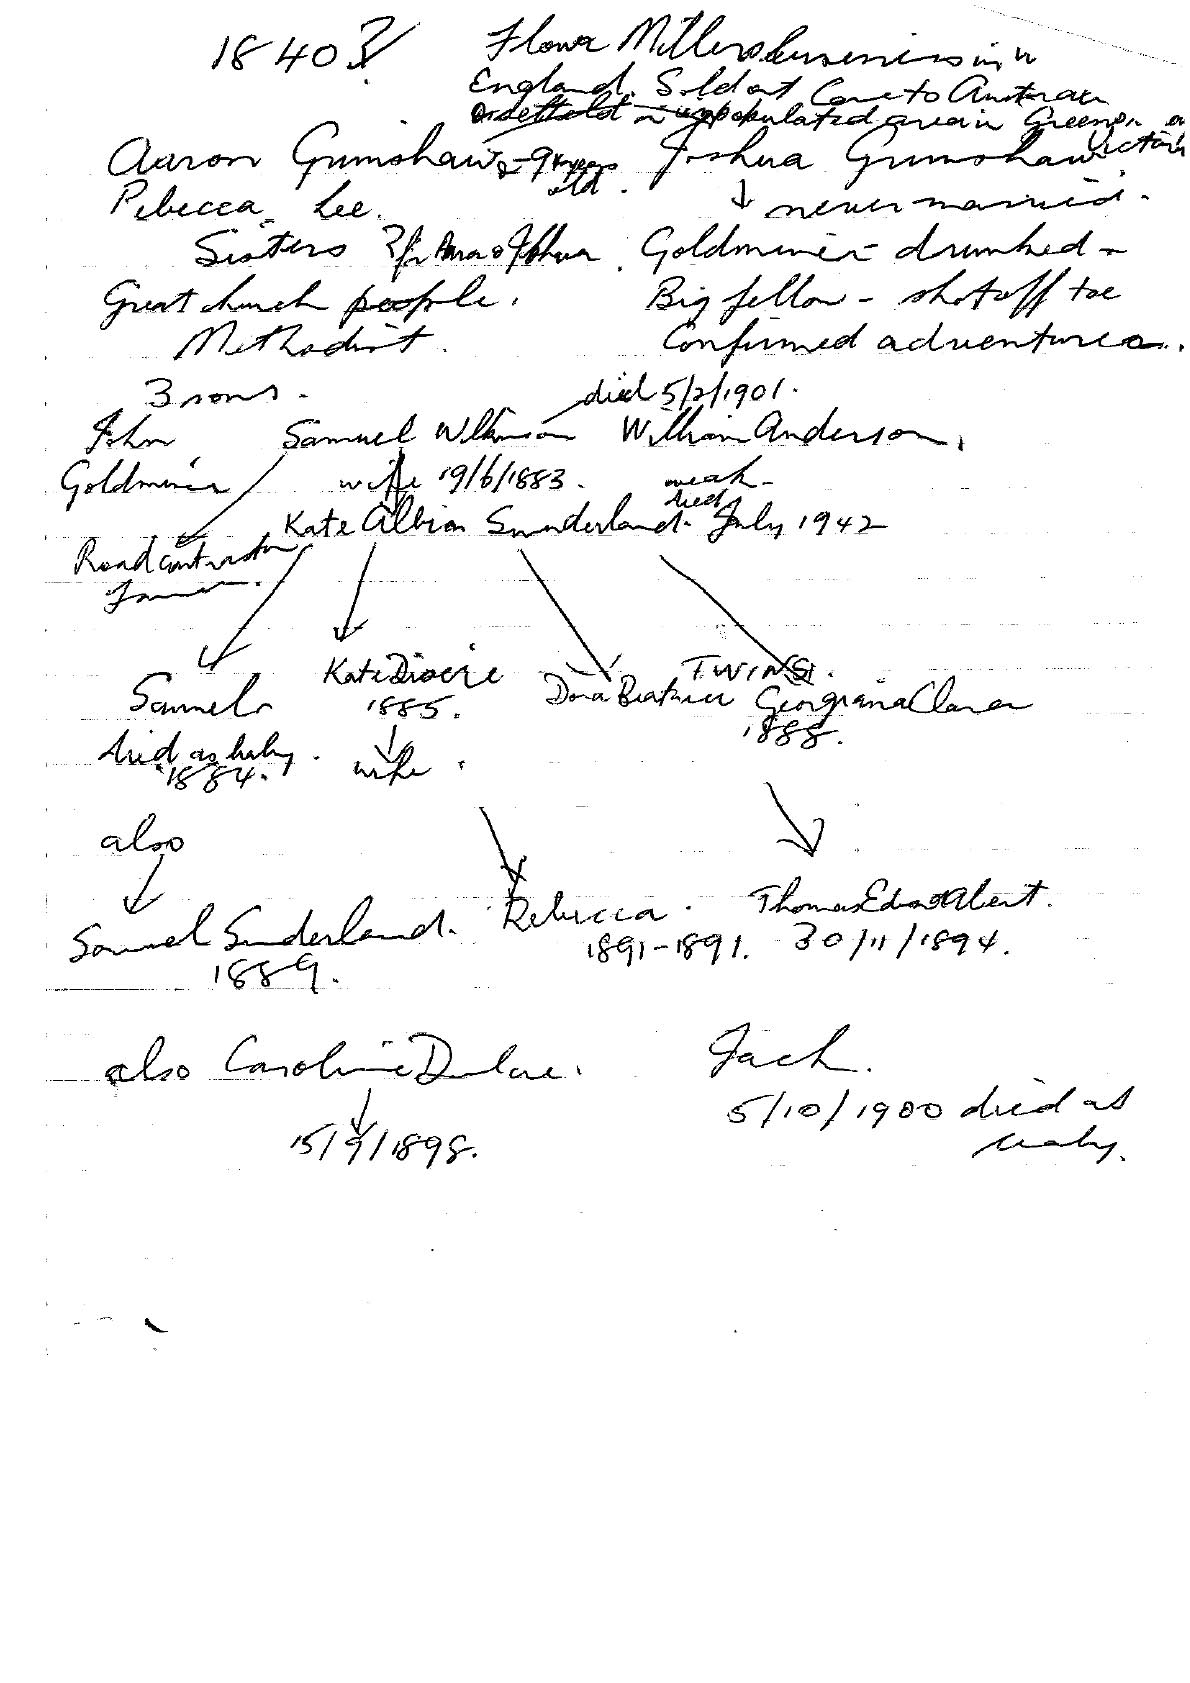 1840?
Flour Millers business in
England. Sold out Came to Australia
populated area in Greens
Aaron Grimshaw 8-9 years old. Joshua Grimshaw Victoria
Rebecca Lee. ↓ never married.
Sisters ? Goldminer - drunked -
Great church people. Big fellow - shot off toe
Methodist. Confirmed adventurer.
3 sons. died 5/2/1901.
John Samuel Wilkinson William Anderson,
Goldminer wife 19/6/1883. weak -
Kate Albion Sunderland. died July 1942
Road contractor
TWINS.
Samuel Kate Dora Beatrice Georgiana Clara
1885. 1888.
died as baby. wife.
1884.
also
Samuel Sunderland. Rebecca. Thomas Albert.
1889. 1891-1891. 30/11/1894.
also Caroline Jack.
15/9/1898. 5/10/1900 died as
baby.